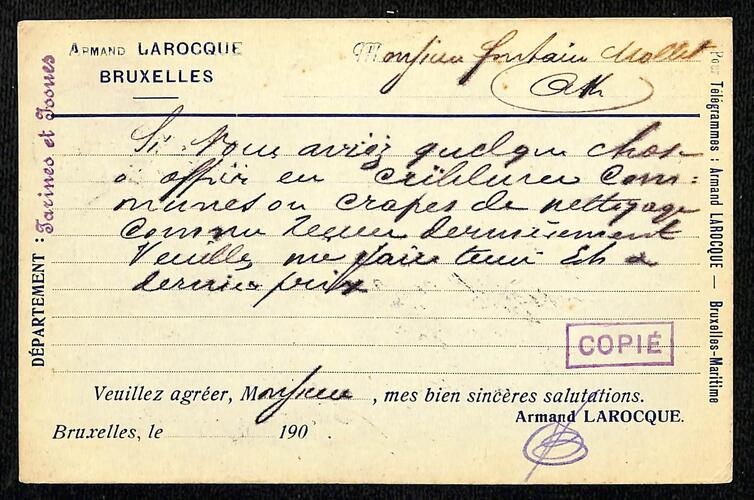 Armand LAROCQUE
BRUXELLES
Monsieur fontaine Mollet
Ath
Si Vous aviez quelque chose
à offrir en criblures com:
munes ou crapes de nettoyage
comme reçu dernièrement
Veuillez me faire tenir Ech a
dernier prix
COPIÉ
Veuillez agréer, Monsieur, mes bien sincères salutations.
Armand LAROCQUE.
Bruxelles, le 190
DÉPARTEMENT : Farines et Issues
Pour Télégrammes : Armand LAROCQUE — Bruxelles-Maritime